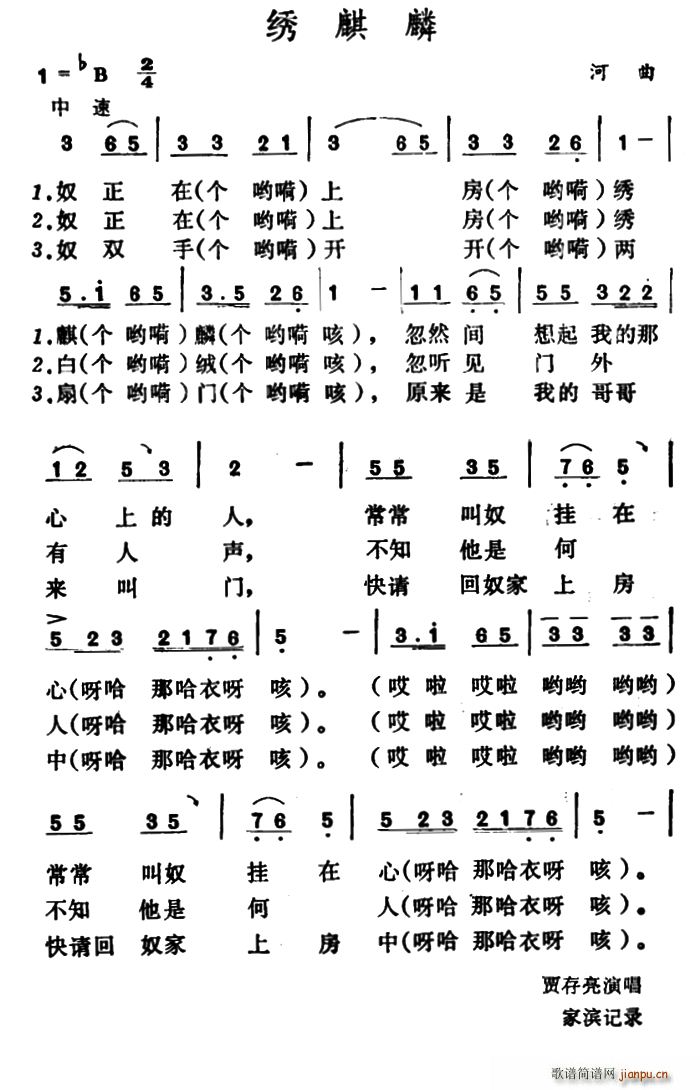 绣麒麟
1=♭B 2/4 河曲
中速
3 65 | 33 21 | 3 65 | 33 26 | 1 - |
1.奴正在(个哟嗬)上房(个哟嗬)绣
2.奴正在(个哟嗬)上房(个哟嗬)绣
3.奴双手(个哟嗬)开开(个哟嗬)两
5.i 65 | 3.5 26 | 1 - | 11 65 | 55 322 |
1.麒(个哟嗬)麟(个哟嗬咳)，忽然间想起我的那
2.白(个哟嗬)绒(个哟嗬咳)，忽听见门外
3.扇(个哟嗬)门(个哟嗬咳)，原来是我的哥哥
12 53 | 2 - | 55 35 | 76 5 |
心上的人，常常叫奴挂在
有人声，不知他是何
来叫门，快请回奴家上房
5 23 2176 | 5 - | 3.i 65 | 33 33 |
心(呀哈那哈衣呀咳)。(哎啦哎啦哟哟哟哟)
人(呀哈那哈衣呀咳)。(哎啦哎啦哟哟哟哟)
中(呀哈那哈衣呀咳)。(哎啦哎啦哟哟哟哟)
55 35 | 76 5 | 5 23 2176 | 5 - |
常常叫奴挂在心(呀哈那哈衣呀咳)。
不知他是何人(呀哈那哈衣呀咳)。
快请回奴家上房中(呀哈那哈衣呀咳)。
贾存亮演唱
家滨记录
歌谱简谱网
jianpu.cn